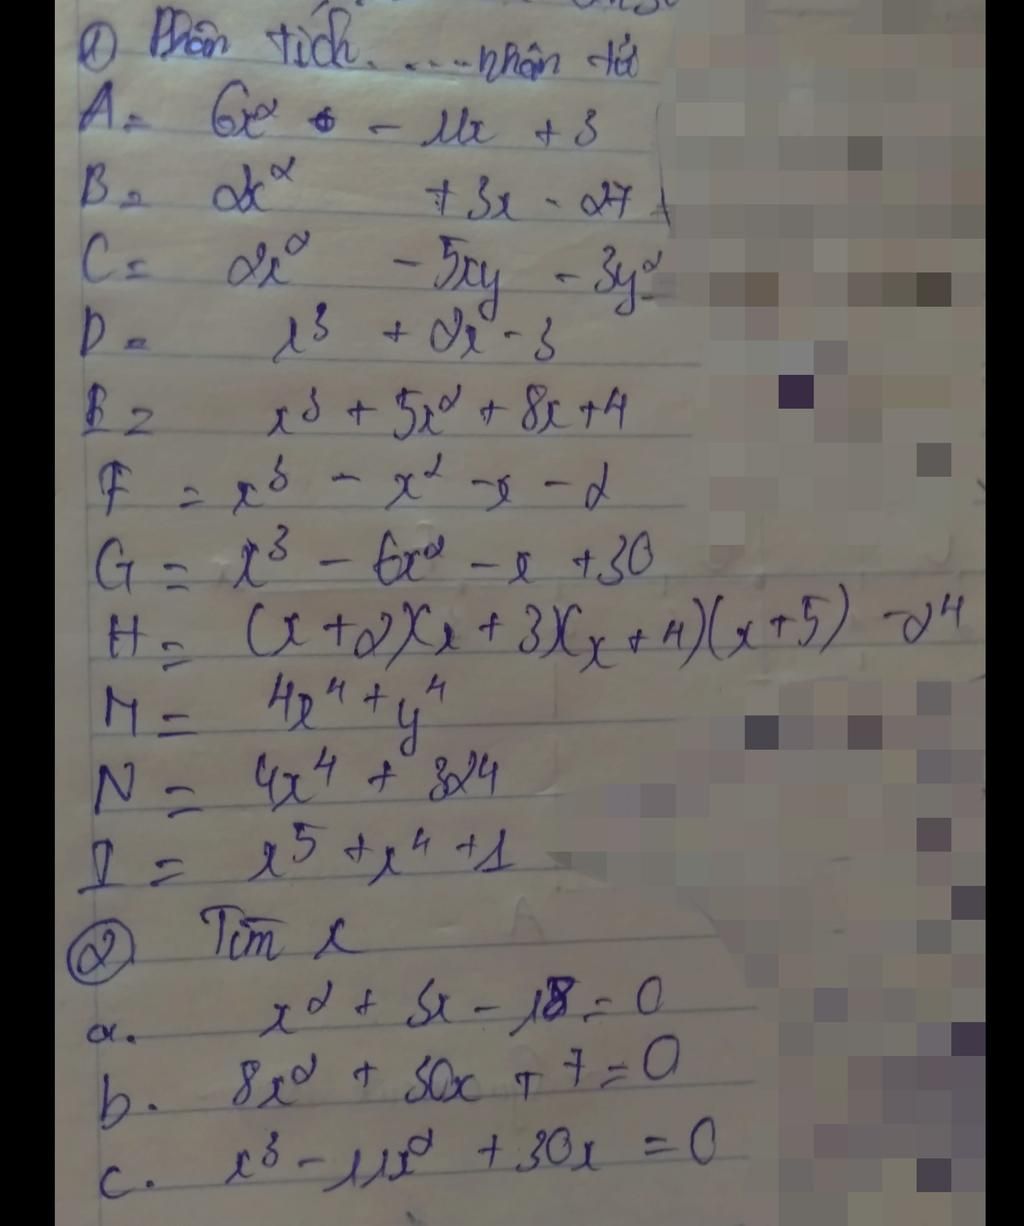 ① Phân tích.....nhân tử
A = 6x² - 11x + 3
B = 2x² + 3x - 27
C = 2x² - 5xy - 3y²
D = x³ + 2x - 3
E = x³ + 5x² + 8x + 4
F = x³ - x² - x - 2
G = x³ - 6x² - x + 30
H = (x + 2)(x + 3)(x + 4)(x + 5) - 24
M = 4x⁴ + y⁴
N = 4x⁴ + 324
I = x⁵ + x⁴ + 1
② Tìm x
a. x² + 3x - 18 = 0
b. 8x² + 30x + 7 = 0
c. x³ - 11x² + 30x = 0